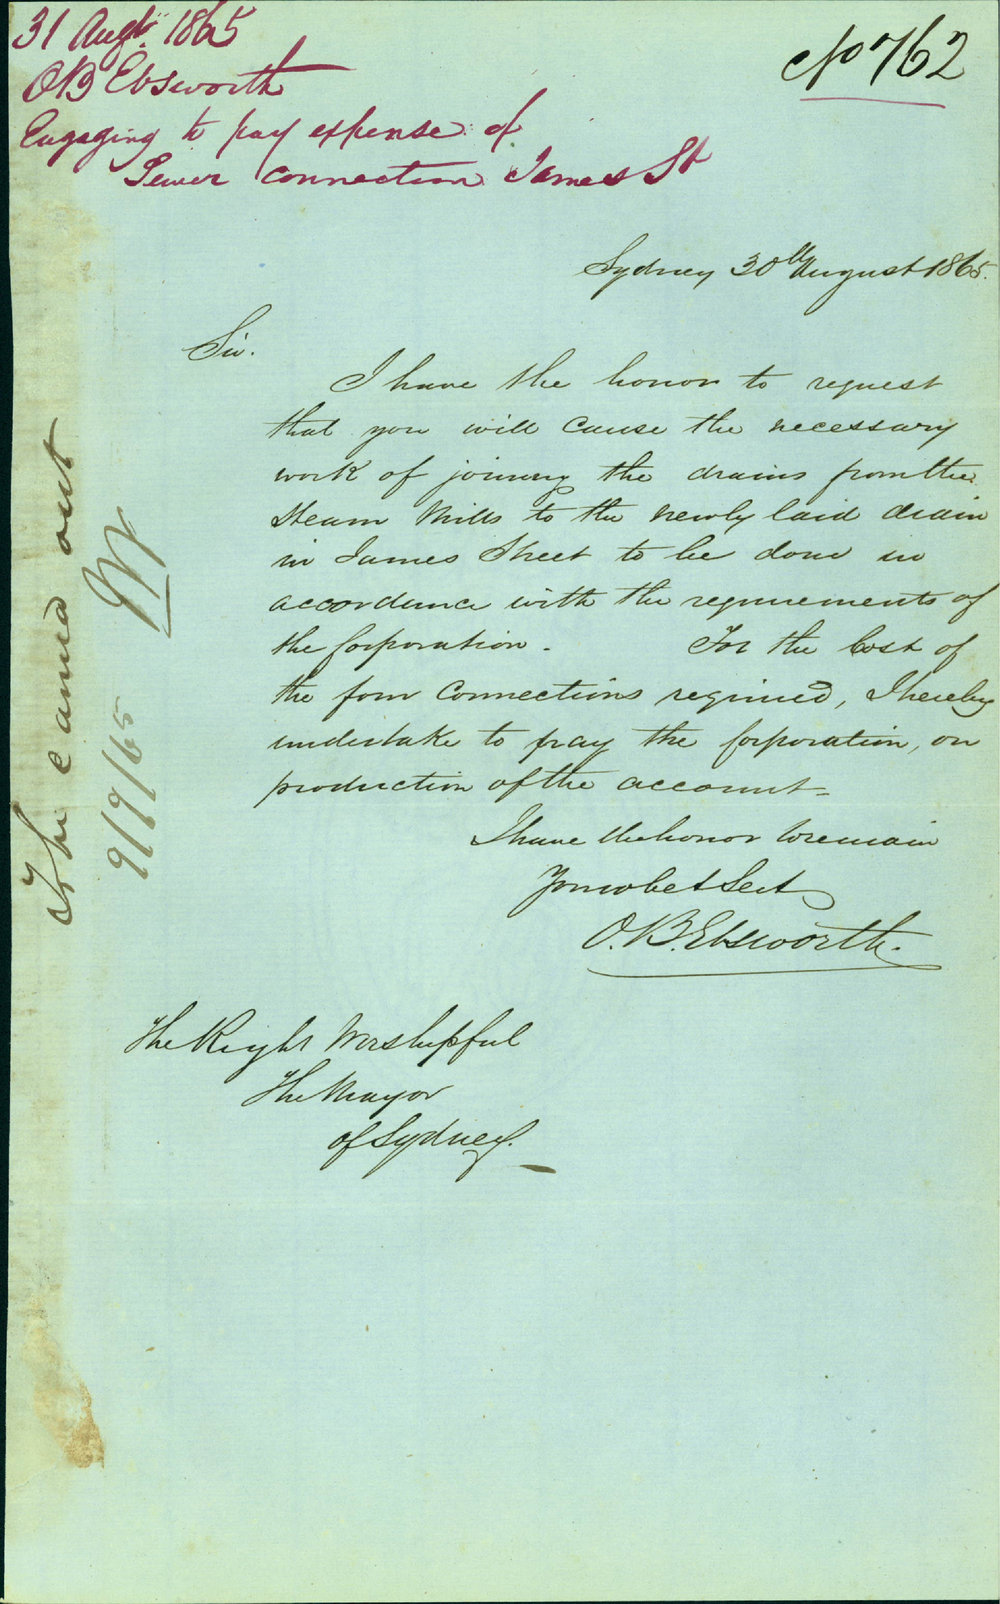 31 Augt. 1865
OB Ebsworth
Engaging to pay expense of
Sewer connection James St
No 762
Sydney 30th August 1865.
Sir.
I have the honor to request
that you will cause the necessary
work of joining the drains from the
Steam Mills to the newly laid drain
in James Street to be done in
accordance with the requirements of
the Corporation. For the Cost of
the four Connections required, I hereby
undertake to pay the Corporation, on
production of the account
I have the honor to remain
Your obet Sert
O. B. Ebsworth.
The Right Worshipful
The Mayor
of Sydney.
To be carried out
9/9/65